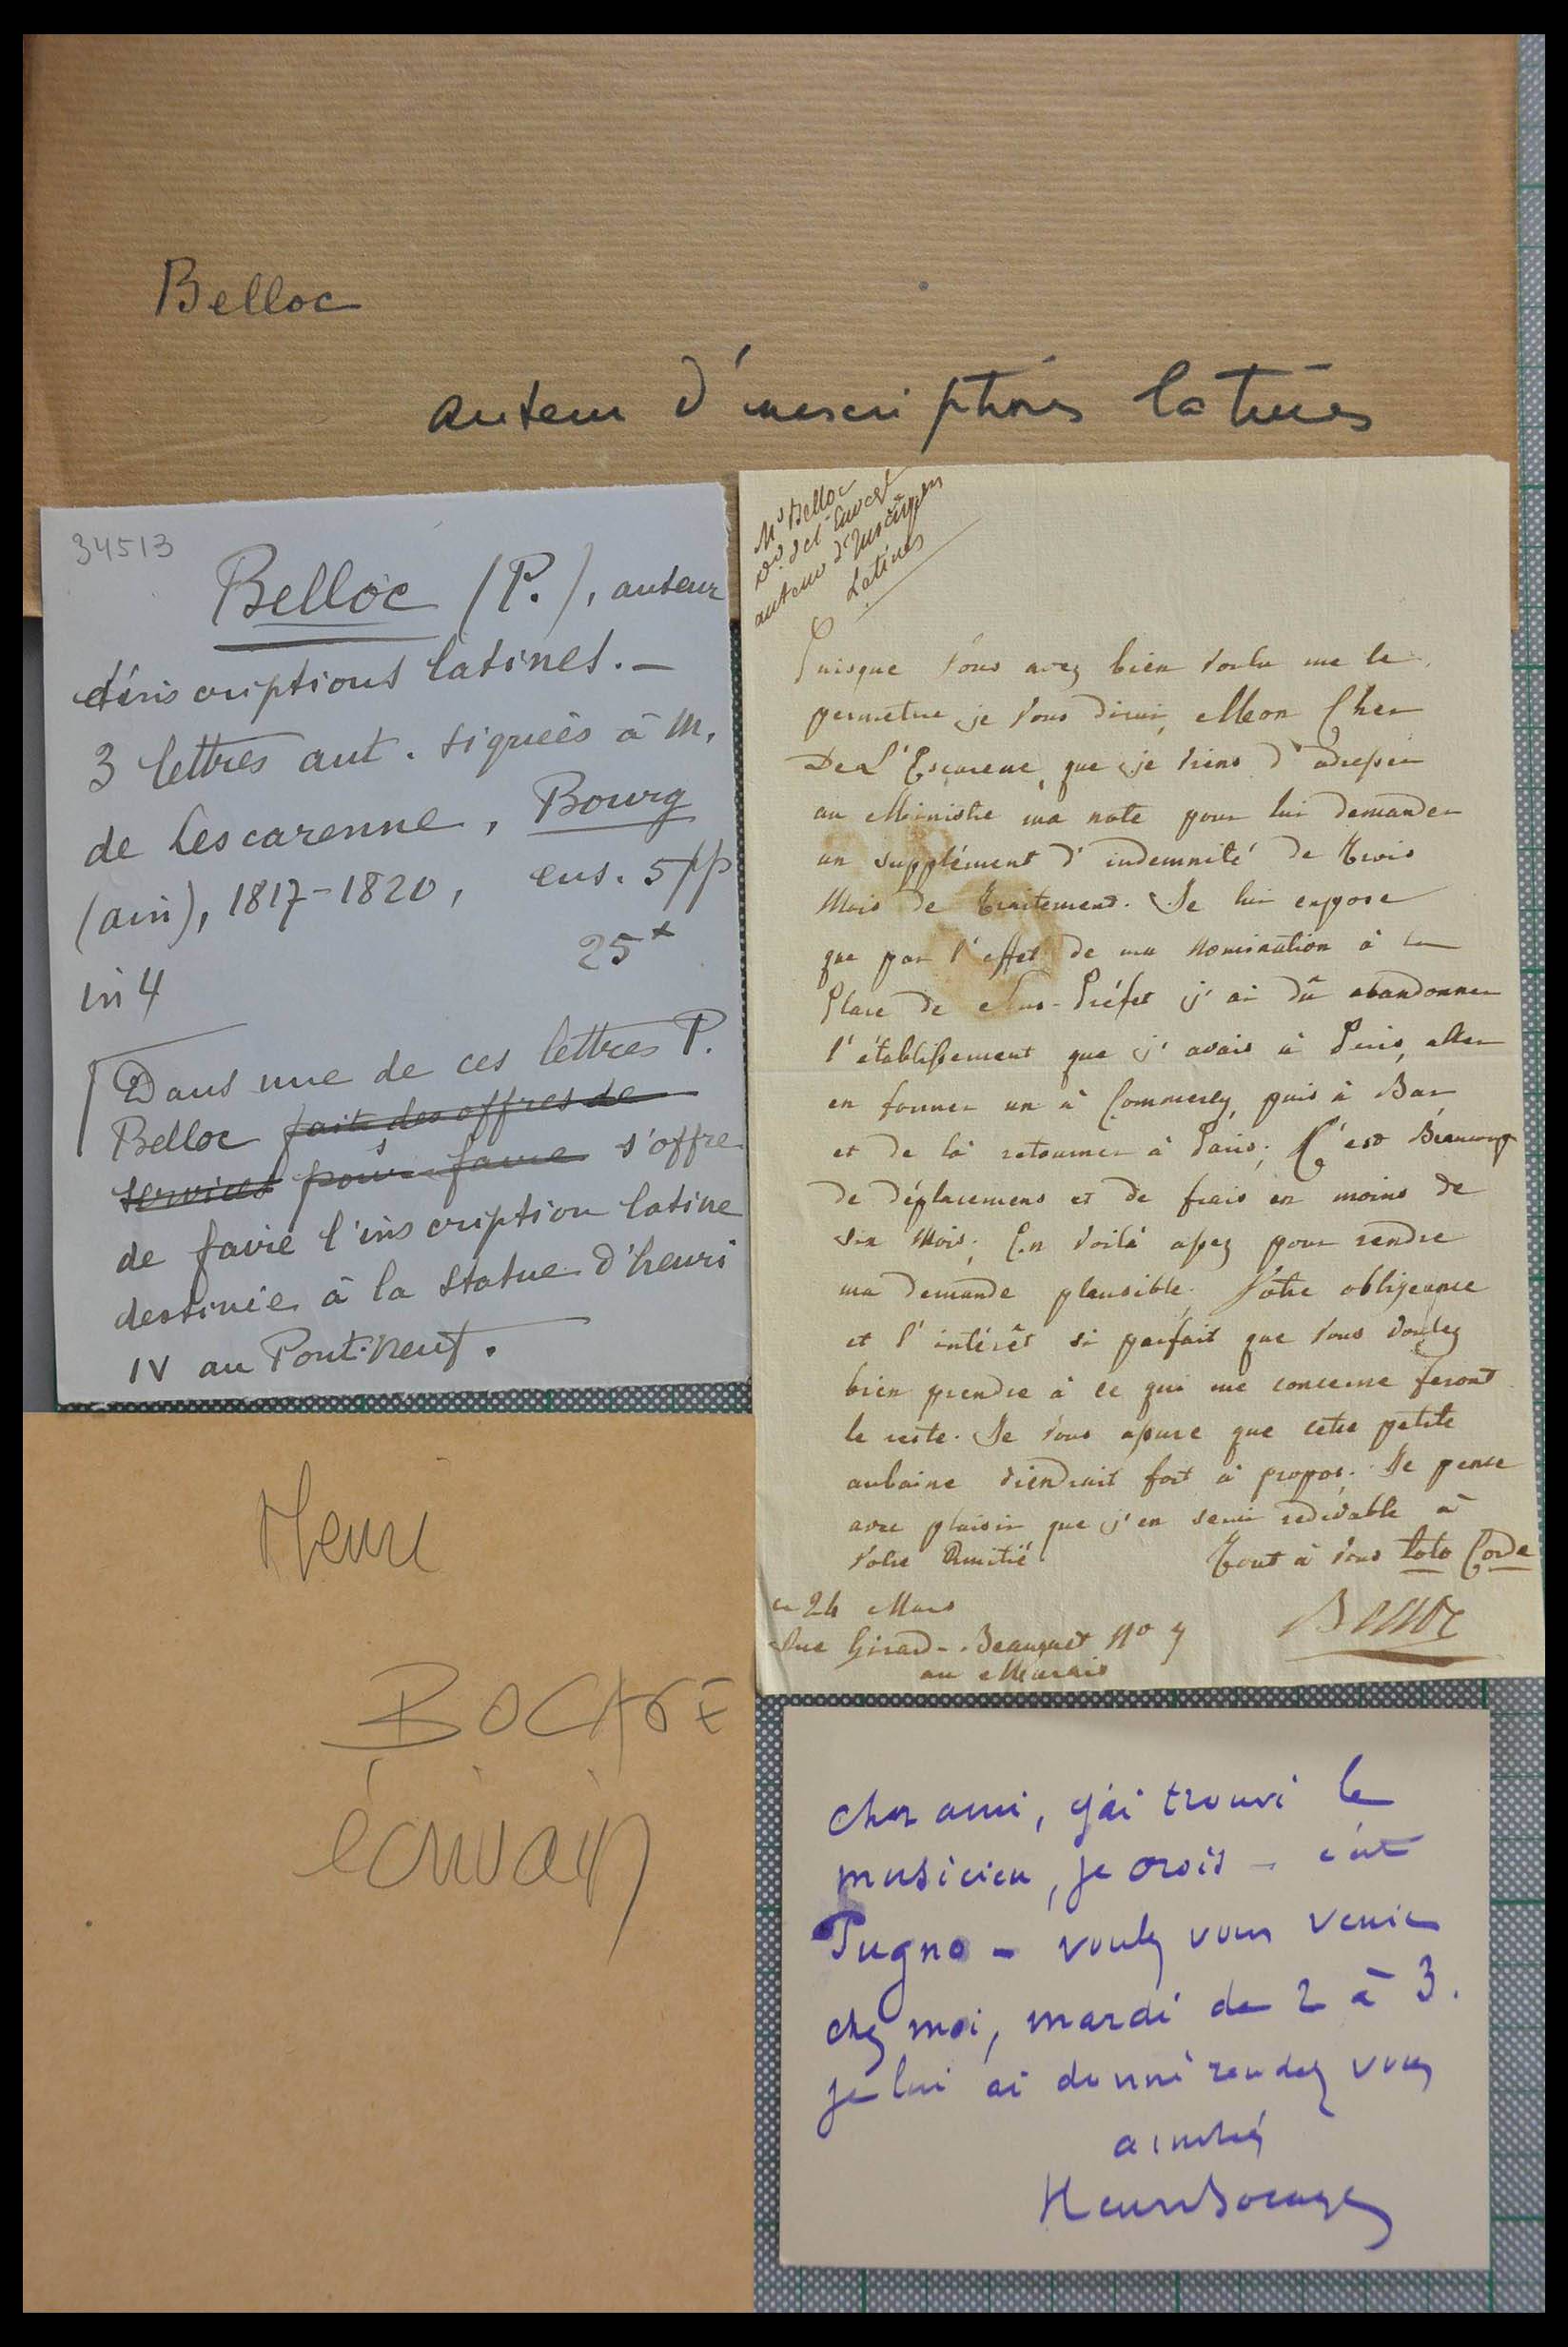 Belloc
auteur d'inscriptions latines
34513
Belloc (P.), auteur
d'inscriptions latines. —
3 lettres aut. signées à M.
de Lescarenne, Bourg
(ain), 1817-1820, ens. 5 pp
in 4
25
Dans une de ces lettres P.
Belloc fait des offres de
services pour faire s'offre
de faire l'inscription latine
destinée à la statue d'henri
IV au Pont-neuf.
Mr Belloc
auteur d'Inscriptions
Latines
Puisque vous avez bien voulu me le
permettre, je vous dirai, Mon Cher
De L'Escarene, que je viens d'adresser
au Ministre ma note pour lui demander
un supplément d'indemnité de trois
Mois de traitement. Je lui expose
que par l'effet de ma nomination à la
Place de Sous-Préfet j'ai dû abandonner
l'établissement que j'avais à Paris, aller
en former un à Commercy, puis à Bar
et de là retourner à Paris; C'est Beaucoup
de déplacemens et de frais en moins de
six Mois. En voilà assez pour rendre
ma demande plausible. Votre obligeance
et l'intérêt si parfait que vous voulez
bien prendre à ce qui me concerne feront
le reste. Je vous assure que cette petite
aubaine viendrait fort à propos. Je pense
avec plaisir que j'en serai redevable à
votre Amitié. Tout à vous toto Corde
ce 24 Mars
Rue Girard-Beauquet No 7
au Marais
Belloc
Henri
BOCAGE
écrivain
cher ami, j'ai trouvé le
musicien, je crois - c'est
Pugno - voulez vous venir
chez moi, mardi de 2 à 3.
je lui ai donné rendez vous
amitiés
Henri Bocage